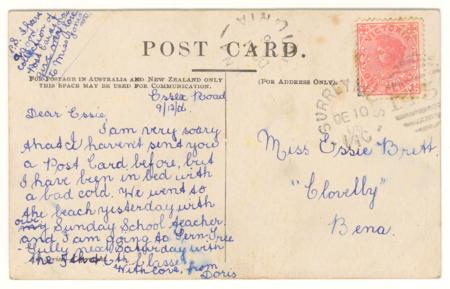 P.S. I have
a good
collection of
Post Cards
to Miss Jones.
POST CARD.
FOR POSTAGE IN AUSTRALIA AND NEW ZEALAND ONLY
THIS SPACE MAY BE USED FOR COMMUNICATION.
(FOR ADDRESS ONLY).
VICTORIA
SURREY
DE 10
VIC
Essex Road
Dear Essie,
I am very sorry
that I haven't sent you
a Post Card before, but
I have been in bed with
a bad cold. We went to
the beach yesterday with
our
my Sunday School teacher
and I am going to Fern-Tree
Gully next Saturday with
the 5th & 6th Classes.
With love, from
Doris
Miss Essie Brett.
"Clovelly"
Bena.